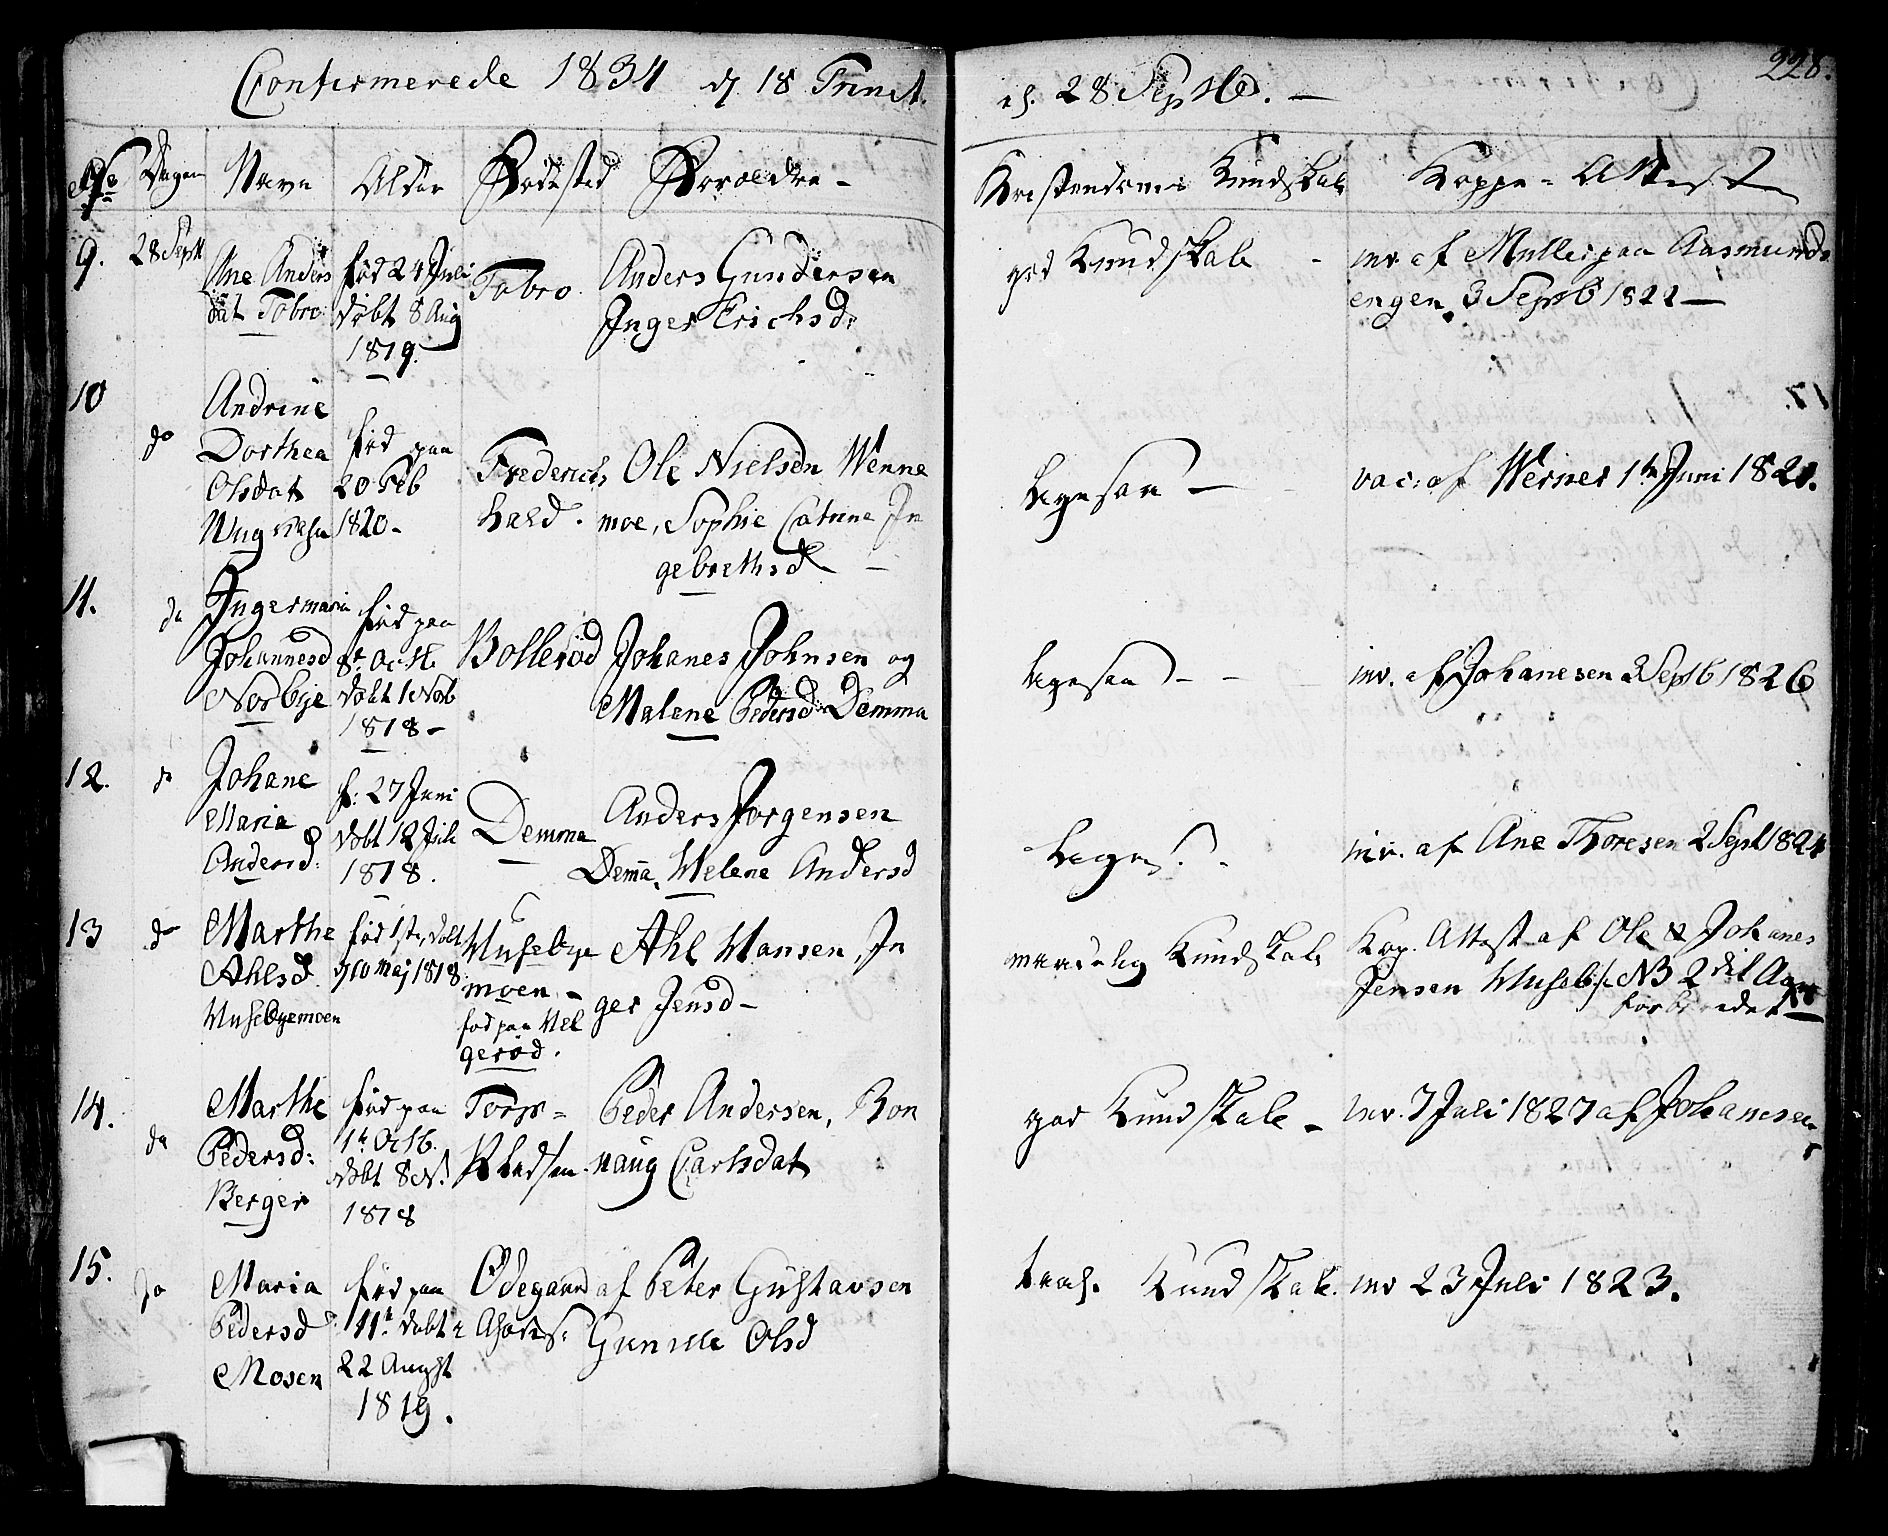 Confirmerede 1834 d 18 Trinit.
ɔ: 28 Septb. —
228.
No Dagen Navn Alder Fødested Forældre -
Kristendoms Kundskab Koppe-Attest
9. 28 Sept Ane Anders født 24 Juli Tobro Anders Gundersen
dat Tobro. døbt 8 Aug Inger Erichsd:
1819.
god Kundskab - inv af Muller paa Aasmunds
engen 3 Septb 1822 —
10 do Andrine
Dorthea
Olsdat
født paa
20 Feb
1820-
Frederichs
hald.
Ole Nielsen Wenne
moe, Sophie Catrine In
gebrethsd —
ligesaa — vac: af Werner 1te Juni 1821.
11. do Ingermaria
Johannesd
Norbye
født paa
8de Octb.
døbt 1 Nov
1818-
Bollerød
Johanes Johnsen og
Malene Pedersd Demma
ligesaa - - inv. af Johanesen 3 Septb 1826
12. do Johane
Maria
Andersd:
f: 27 Juni
døbt 12 Juli
1818.
Demma
Anders Jørgensen
Dem̄a, Helene Andersd
liges. inv. af Ane Thoresen 2 Sept 1824
13 do Marthe
Ahlsd.
Husebyemoen
født 1ste, døbt
d 10 Maj 1818
Husebye
moen -
fød paa Hel
gerød.
Ahl Hansen, In
ger Jensd-
maadelig Kundskab
Kop. Attest af Ole Johanes
Jensen Huseb: NB 2 det Aar
forberedet
14. do Marthe
Pedersd:
Berger
født paa
1te Octb.
døbt 8 N.
1818
Torp-
Pladsen
Peder Andersen, Ron
naug Carlsdat
god Kundskab - inv. 7 Juli 1827 af Johanesen
15. do Maria
Pedersd
Mosen
født paa
11te døbt
22 August
1819.
Ødegaard
af Peter Gustavsen
Gunille Olsd
Kundskab. inv 23 Juli 1823.